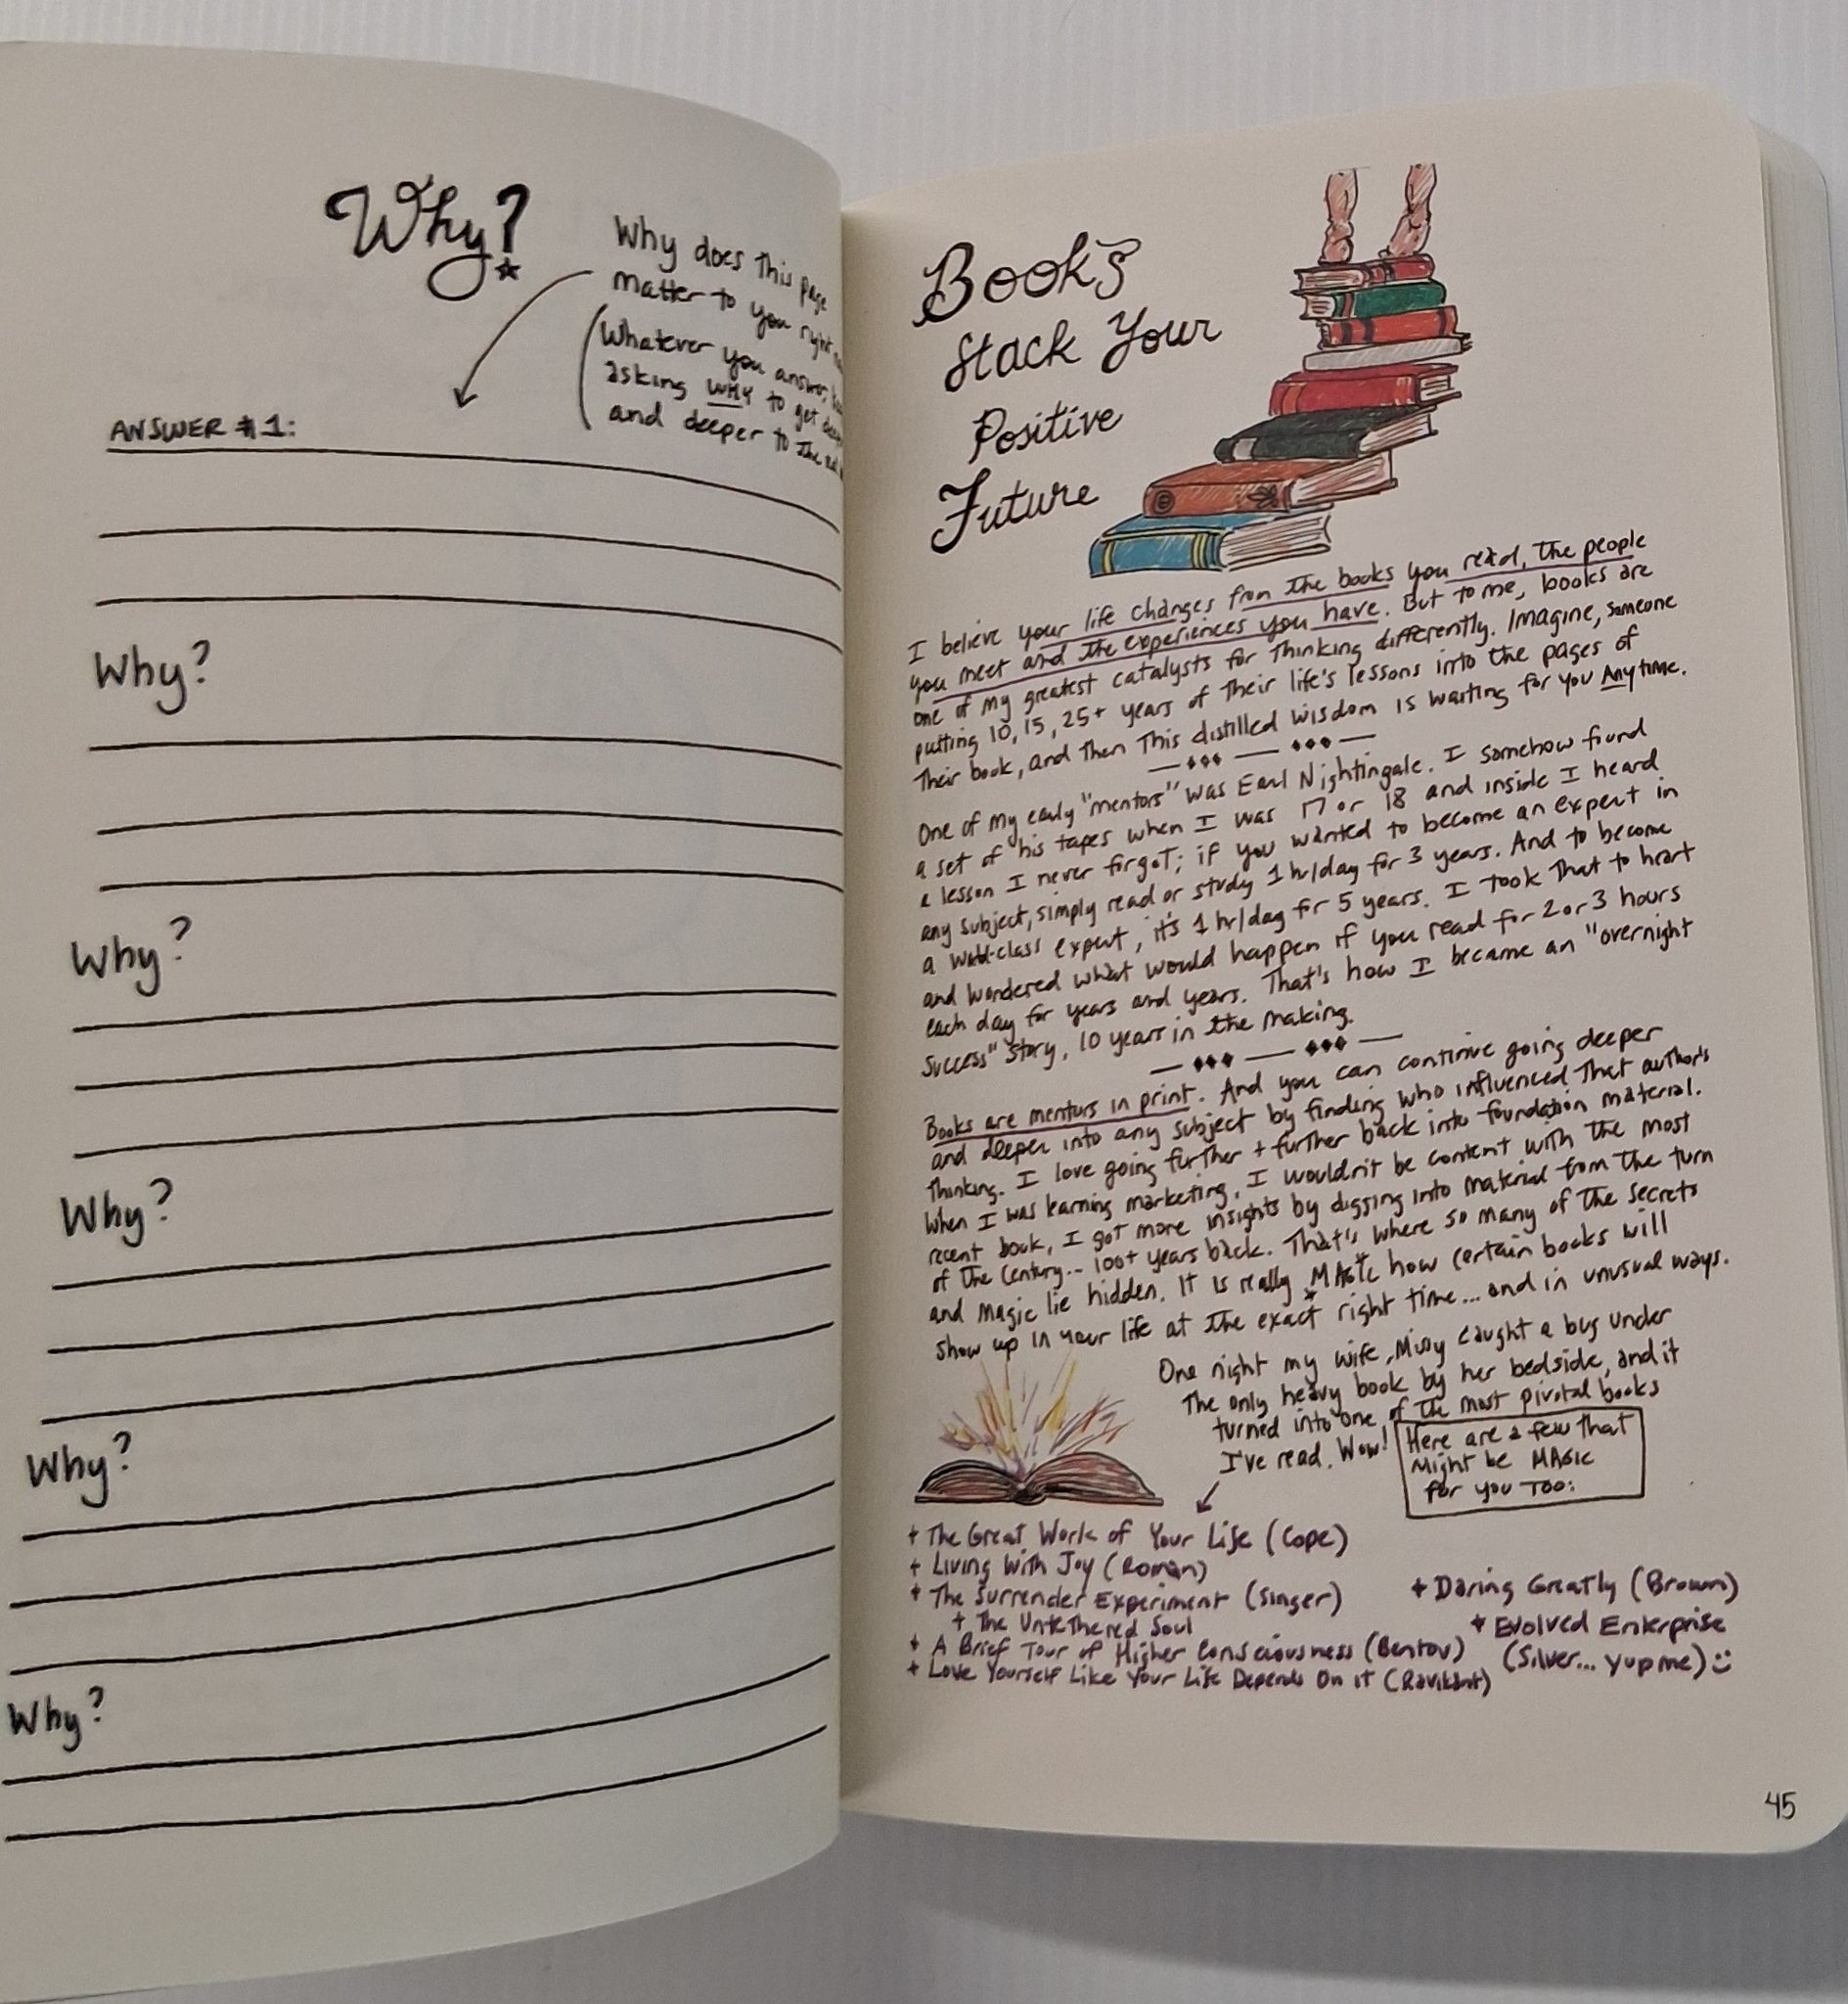 Why?
Why does this page
matter to you right
(Whatever you answer,
asking WHY to get
and deeper to the
ANSWER #1:
Why?
Why?
Why?
Why?
Why?
Books
Stack Your
Positive
Future
I believe your life changes from the books you read, the people
you meet and the experiences you have. But to me, books are
one of my greatest catalysts for thinking differently. Imagine, someone
putting 10, 15, 25+ years of their life's lessons into the pages of
their book, and then this distilled wisdom is waiting for you Anytime.
One of my early "mentors" was Earl Nightingale. I somehow found
a set of his tapes when I was 17 or 18 and inside I heard
a lesson I never forgot; if you wanted to become an expert in
any subject, simply read or study 1 hr/day for 3 years. And to become
a world-class expert, it's 1 hr/day for 5 years. I took that to heart
and wondered what would happen if you read for 2 or 3 hours
each day for years and years. That's how I became an "overnight
success" story, 10 years in the making.
Books are mentors in print. And you can continue going deeper
and deeper into any subject by finding who influenced that author's
thinking. I love going further + further back into foundation material.
When I was learning marketing, I wouldn't be content with the most
recent book, I got more insights by digging into material from the turn
of the century... 100+ years back. That's where so many of the secrets
and magic lie hidden. It is really MAGIC how certain books will
show up in your life at the exact right time... and in unusual ways.
One night my wife, Missy caught a bug under
the only heavy book by her bedside, and it
turned into one of the most pivotal books
I've read. Wow!
Here are a few that
might be MAGIC
for you too:
+ The Great Work of Your Life (Cope)
+ Living With Joy (Roman)
+ The Surrender Experiment (Singer)
+ The Untethered Soul
+ A Brief Tour of Higher Consciousness (Bentov)
+ Love Yourself Like Your Life Depends On It (Ravikant)
+ Daring Greatly (Brown)
+ Evolved Enterprise
(Silver... yup me) :)
45